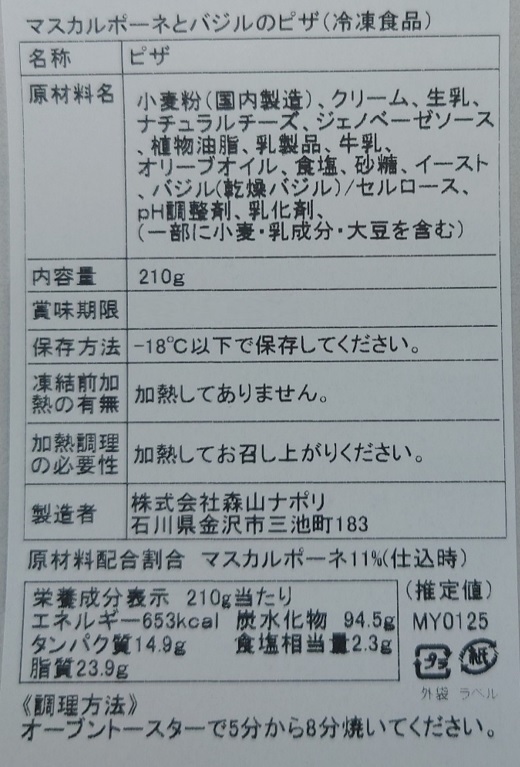 マスカルポーネとバジルのピザ(冷凍食品)
名称 ピザ
原材料名 小麦粉(国内製造)、クリーム、生乳、
ナチュラルチーズ、ジェノベーゼソース
、植物油脂、乳製品、牛乳、
オリーブオイル、食塩、砂糖、イースト
、バジル(乾燥バジル)/セルロース、
pH調整剤、乳化剤、
(一部に小麦・乳成分・大豆を含む)
内容量 210g
賞味期限
保存方法 -18℃以下で保存してください。
凍結前加
熱の有無 加熱してありません。
加熱調理
の必要性 加熱してお召し上がりください。
製造者 株式会社森山ナポリ
石川県金沢市三池町183
原材料配合割合 マスカルポーネ11%(仕込時)
栄養成分表示 210g当たり (推定値)
エネルギー653kcal 炭水化物 94.5g MY0125
タンパク質14.9g 食塩相当量2.3g
脂質23.9g
プラ 紙
外袋 ラベル
《調理方法》
オーブントースターで5分から8分焼いてください。